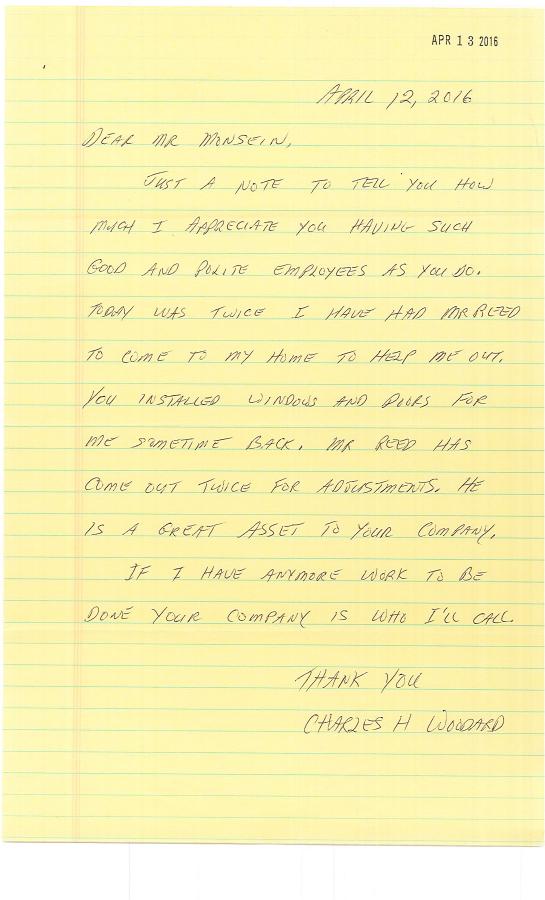 APR 13 2016
APRIL 12, 2016
DEAR MR MONSEIN,
JUST A NOTE TO TELL YOU HOW
MUCH I APPRECIATE YOU HAVING SUCH
GOOD AND POLITE EMPLOYEES AS YOU DO.
TODAY WAS TWICE I HAVE HAD MR REED
TO COME TO MY HOME TO HELP ME OUT.
YOU INSTALLED WINDOWS AND DOORS FOR
ME SOMETIME BACK. MR REED HAS
COME OUT TWICE FOR ADJUSTMENTS. HE
IS A GREAT ASSET TO YOUR COMPANY.
IF I HAVE ANYMORE WORK TO BE
DONE YOUR COMPANY IS WHO I'LL CALL.
THANK YOU
CHARLES H WOODARD